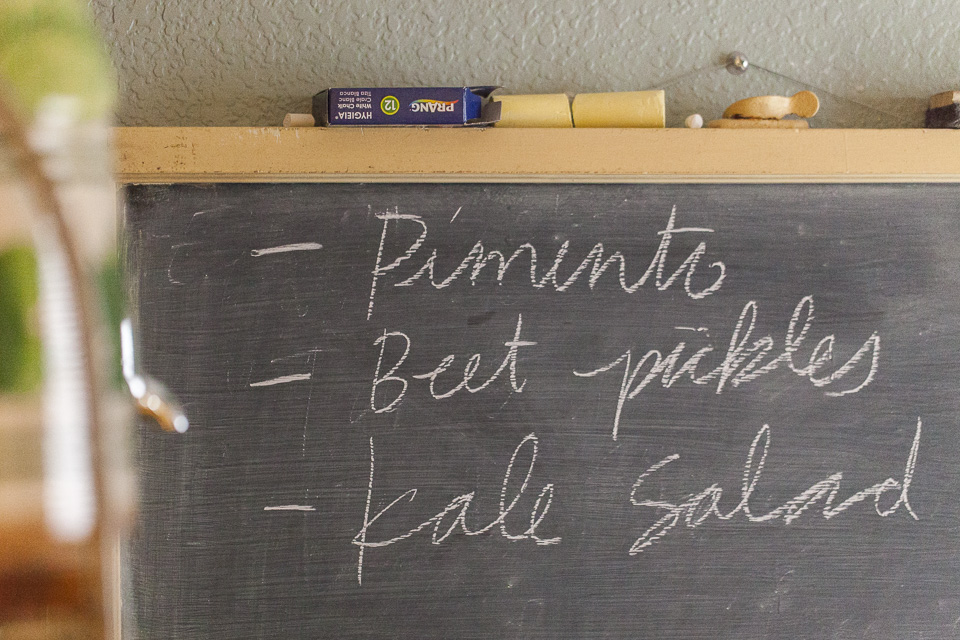 PRANG
12
HYGIEIA®
White Chalk
Craie Blanc
Tiza Blanca
- Pimento
- Beet pickles
- Kale Salad